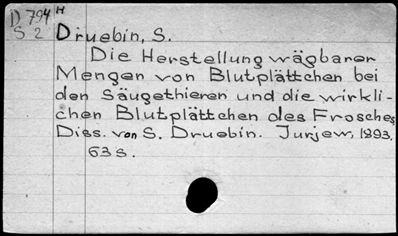 D 794 H
S 2
Druebin, S.
Die Herstellung wägbarer
Mengen von Blutplättchen bei
den Säugethieren und die wirkli-
chen Blutplättchen des Frosches
Diss. von S. Druebin. Jurjew, 1893,
63 s.